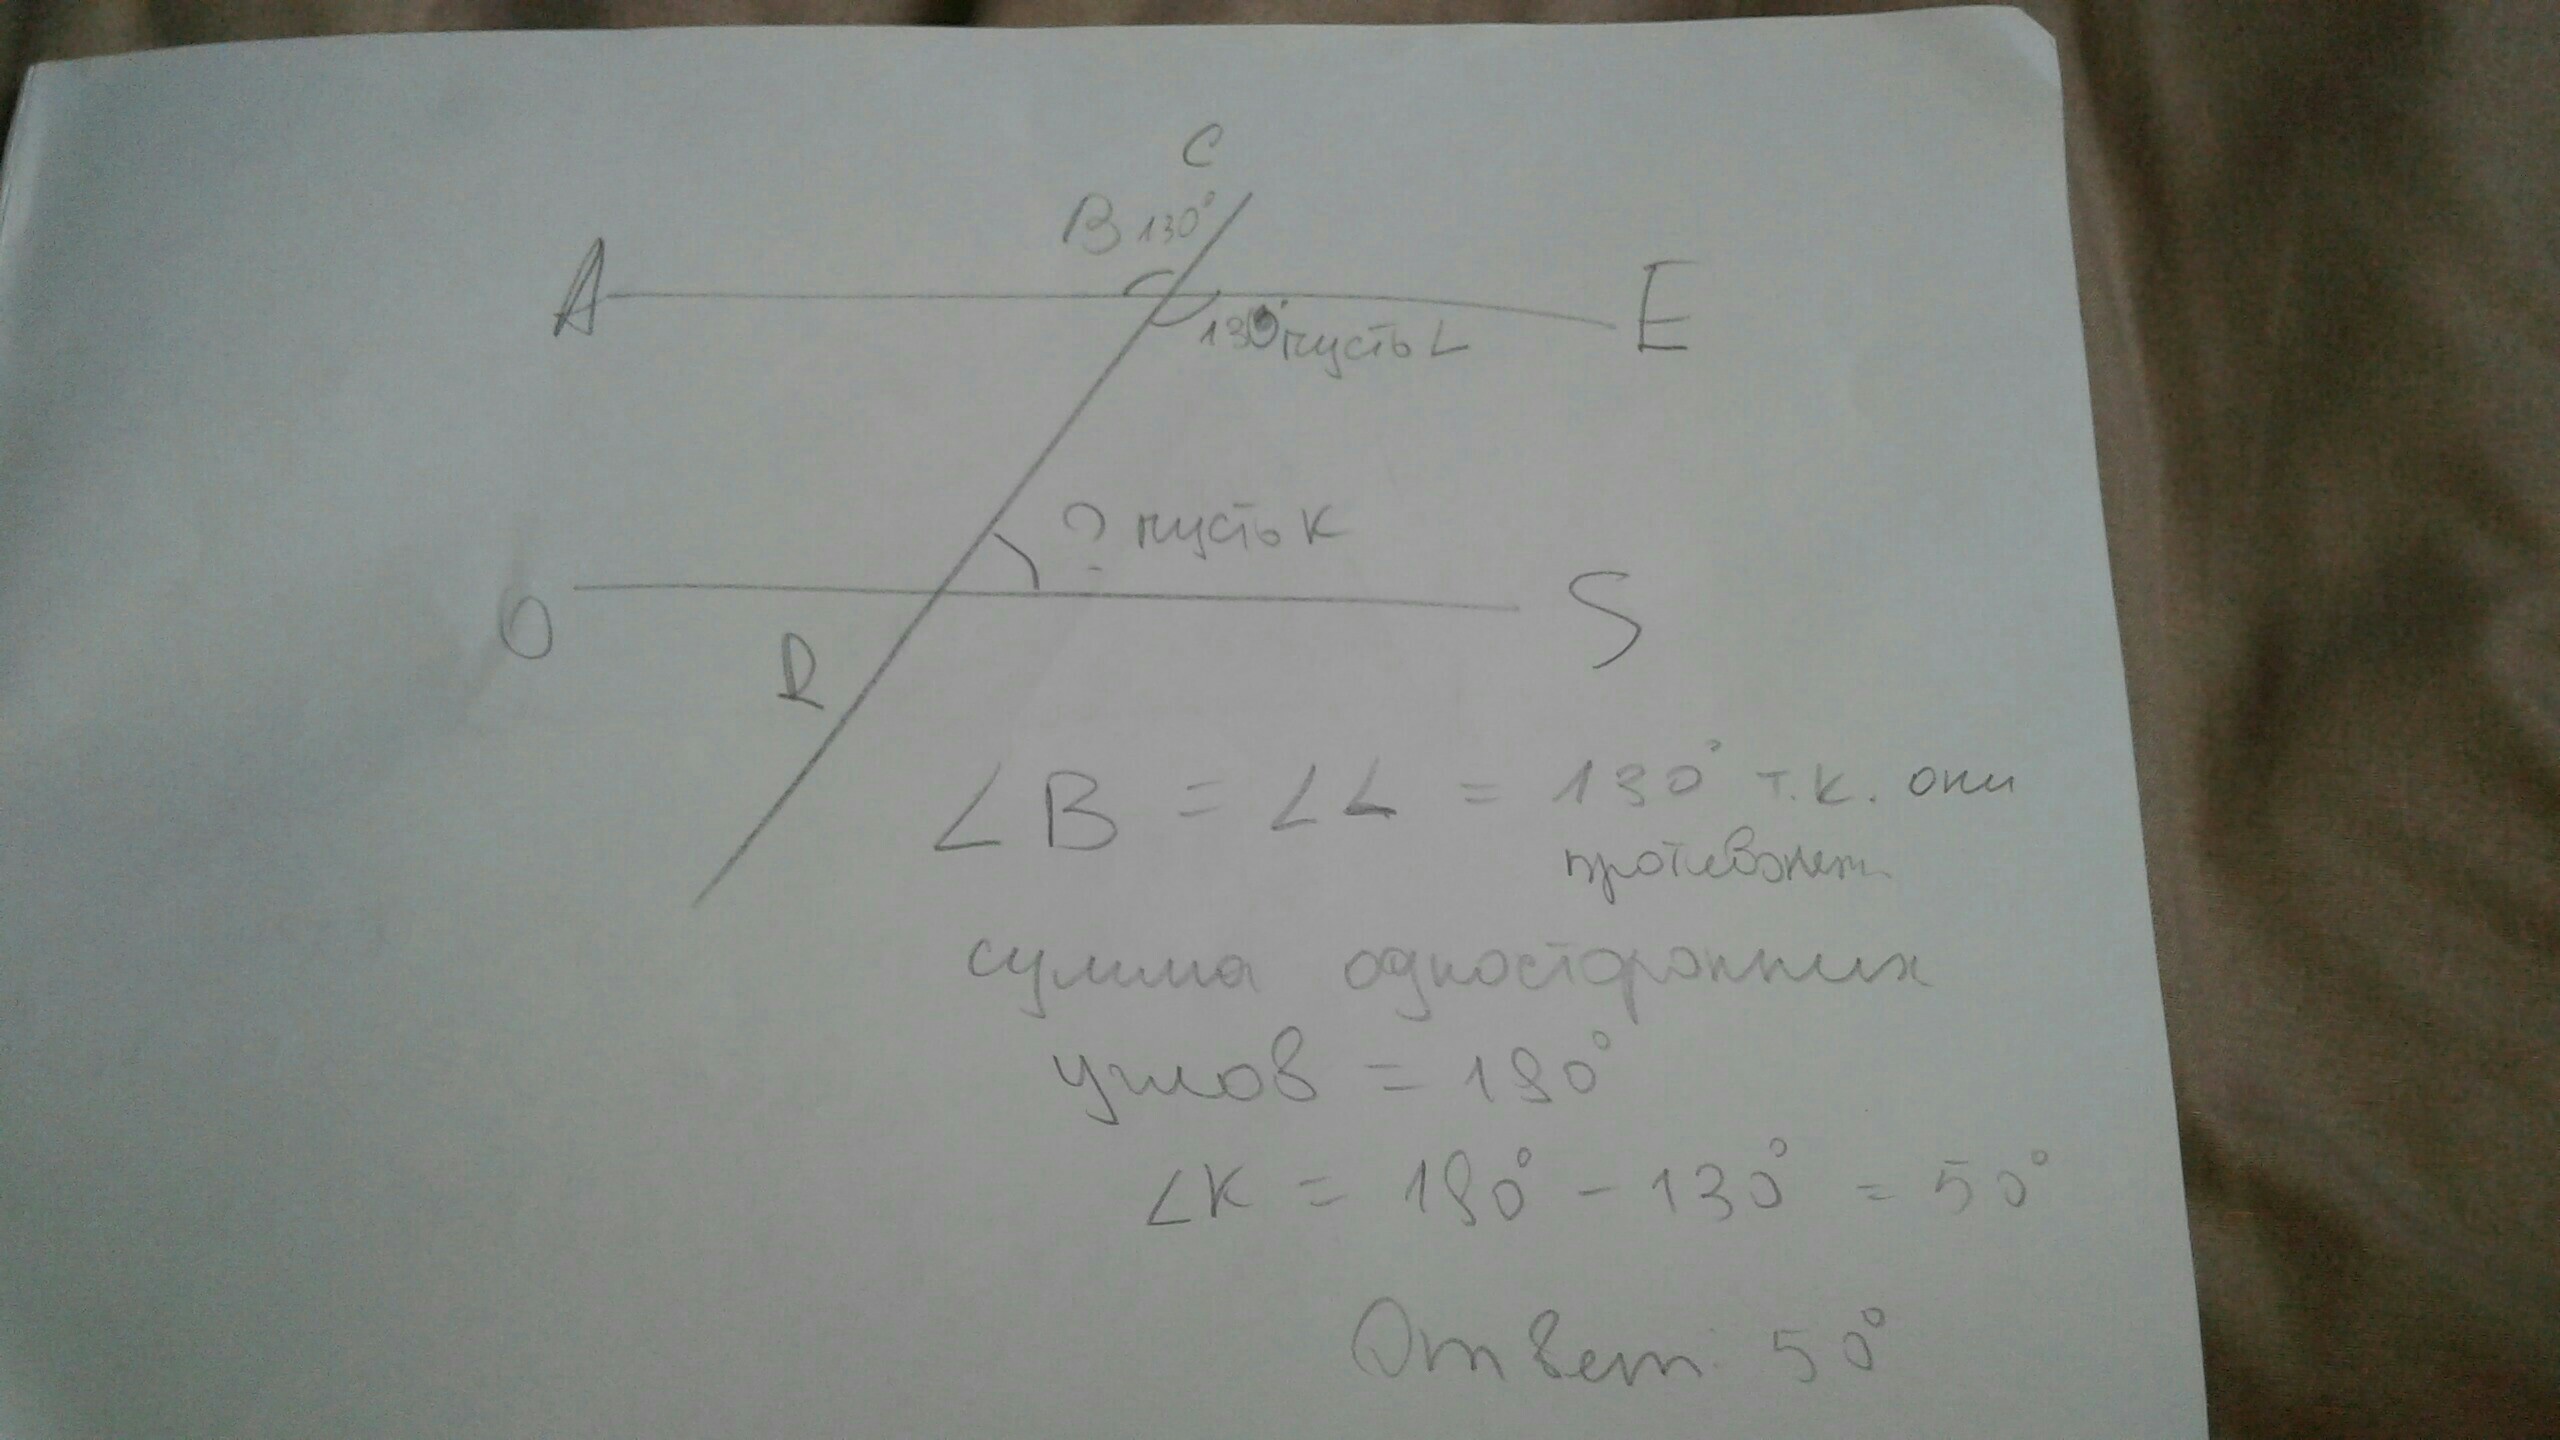 C
B 130°
A
E
130° пусть L
? пусть K
O
S
R
∠B = ∠L = 130° т.к. они
сумма односторонних
углов = 180°
∠K = 180° - 130° = 50°
Ответ: 50°